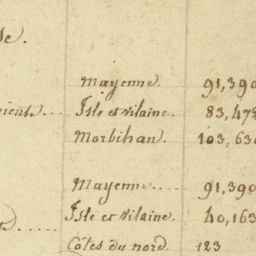 Mayenne. 91,390
Isle et vilaine. 83,47
Morbihan. 103,63
Mayenne..... 91,390
Isle et vilaine. 40,163
Côtes du nord 123